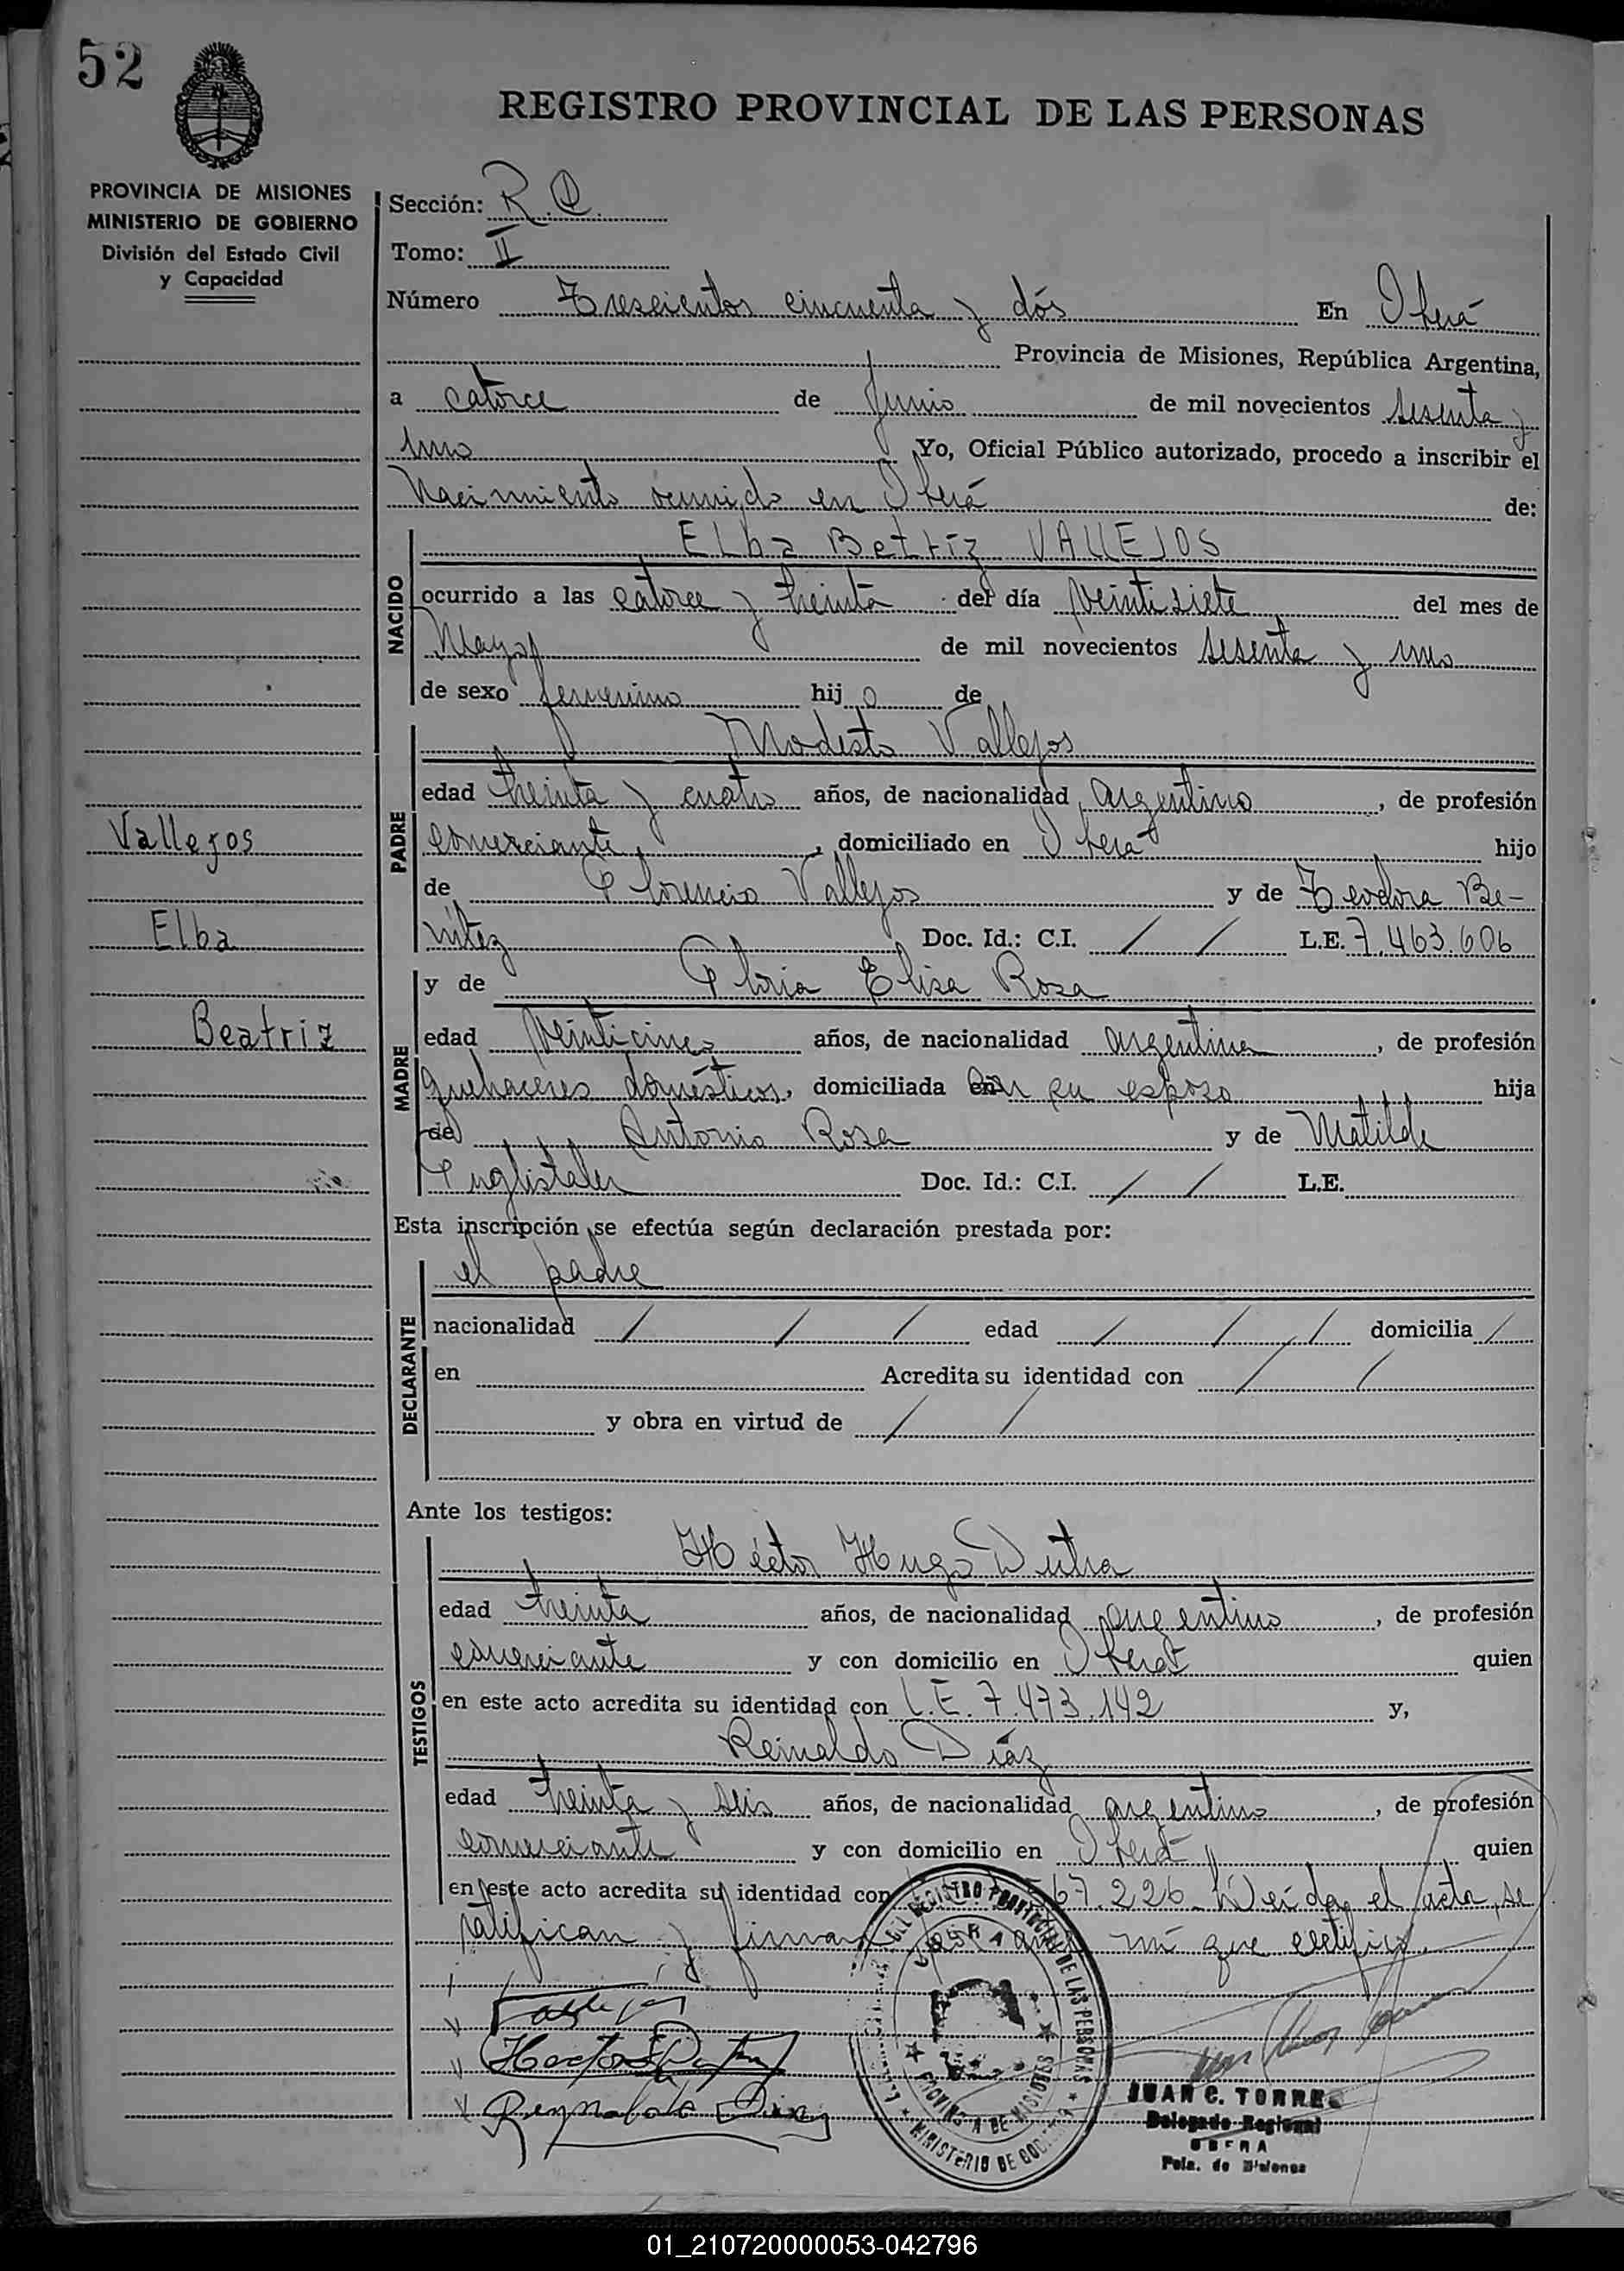 52
REGISTRO PROVINCIAL DE LAS PERSONAS
PROVINCIA DE MISIONES
MINISTERIO DE GOBIERNO
División del Estado Civil
y Capacidad
Sección: R.C.
Tomo: II
Número Trescientos cincuenta y dós En Oberá
Provincia de Misiones, República Argentina,
a catorce de Junio de mil novecientos sesenta y
uno Yo, Oficial Público autorizado, procedo a inscribir el
Nacimiento ocurrido en Oberá de:
NACIDO
Elba Betriz VALLEJOS
ocurrido a las catorce y treinta del día veintisiete del mes de
Mayo de mil novecientos sesenta y uno
de sexo femenino hij a de
PADRE
Modesto Vallejos
edad treinta y cuatro años, de nacionalidad argentino, de profesión
comerciante, domiciliado en Oberá hijo
de Florencio Vallejos y de Teodora Be-
nitez Doc. Id.: C.I. / / L.E. 7.463.606
Vallejos
Elba
Beatriz
MADRE
y de Gloria Elisa Rosa
edad veinticinco años, de nacionalidad argentina, de profesión
quehaceres domésticos, domiciliada con su esposo hija
de Antonio Rosa y de Matilde
Doc. Id.: C.I. / / L.E.
Esta inscripción se efectúa según declaración prestada por:
DECLARANTE
el padre
nacionalidad / / / edad / / / domicilia /
en Acredita su identidad con / /
y obra en virtud de / /
Ante los testigos:
TESTIGOS
Héctor Hugo Dutra
edad treinta años, de nacionalidad argentino, de profesión
comerciante y con domicilio en Oberá quien
en este acto acredita su identidad con L.E. 7.473.142 y,
Reinaldo Díaz
edad treinta y seis años, de nacionalidad argentino, de profesión
comerciante y con domicilio en Oberá quien
en este acto acredita su identidad con 67.226. Leída el acta, se
ratifican y firman por ante mí que certifico.
Vallejos
Hector
Reynaldo Diaz
REGISTRO PROVINCIAL DE LAS PERSONAS
OBERA
PROVINCIA DE MISIONES
MINISTERIO DE GOBIERNO
JUAN C. TORRES
Delegado Regional
OBERA
Pcia. de Misiones
01_210720000053-042796